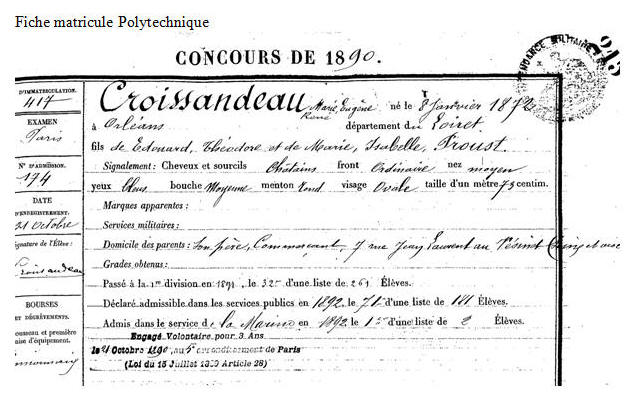 Fiche matricule Polytechnique
CONCOURS DE 1890.
245
D'IMMATRICULATION.
417
EXAMEN
Paris
N° D'ADMISSION.
174
DATE
D'ENREGISTREMENT.
21 octobre
Signature de l'Élève :
Croissandeau
BOURSES
ET DÉGRÈVEMENTS.
ousseau et première
mise d'équipement.
Croissandeau Marie, Eugène René né le 8 Janvier 1872
à Orléans département du Loiret
fils de Edouard, Théodore et de Marie, Isabelle, Proust.
Signalement: Cheveux et sourcils Châtains front Ordinaire nez moyen
yeux bleus bouche Moyenne menton rond visage Ovale taille d'un mètre 73 centim.
Marques apparentes :
Services militaires :
Domicile des parents : Son père, Commerçant, 7 rue Jean Laurent au Vésinet Seine et oise
Grades obtenus:
Passé à la 1re division en 1891, le 32e d'une liste de 261 Élèves.
Déclaré admissible dans les services publics en 1892 le 71e d'une liste de Élèves.
Admis dans le service de la Marine en 1892 le 1er d'une liste de 2 Élèves.
Engagé Volontaire pour 3 Ans
le 21 Octobre 1890, au 5e arrondissement de Paris
(Loi du 15 Juillet 1889 Article 28)